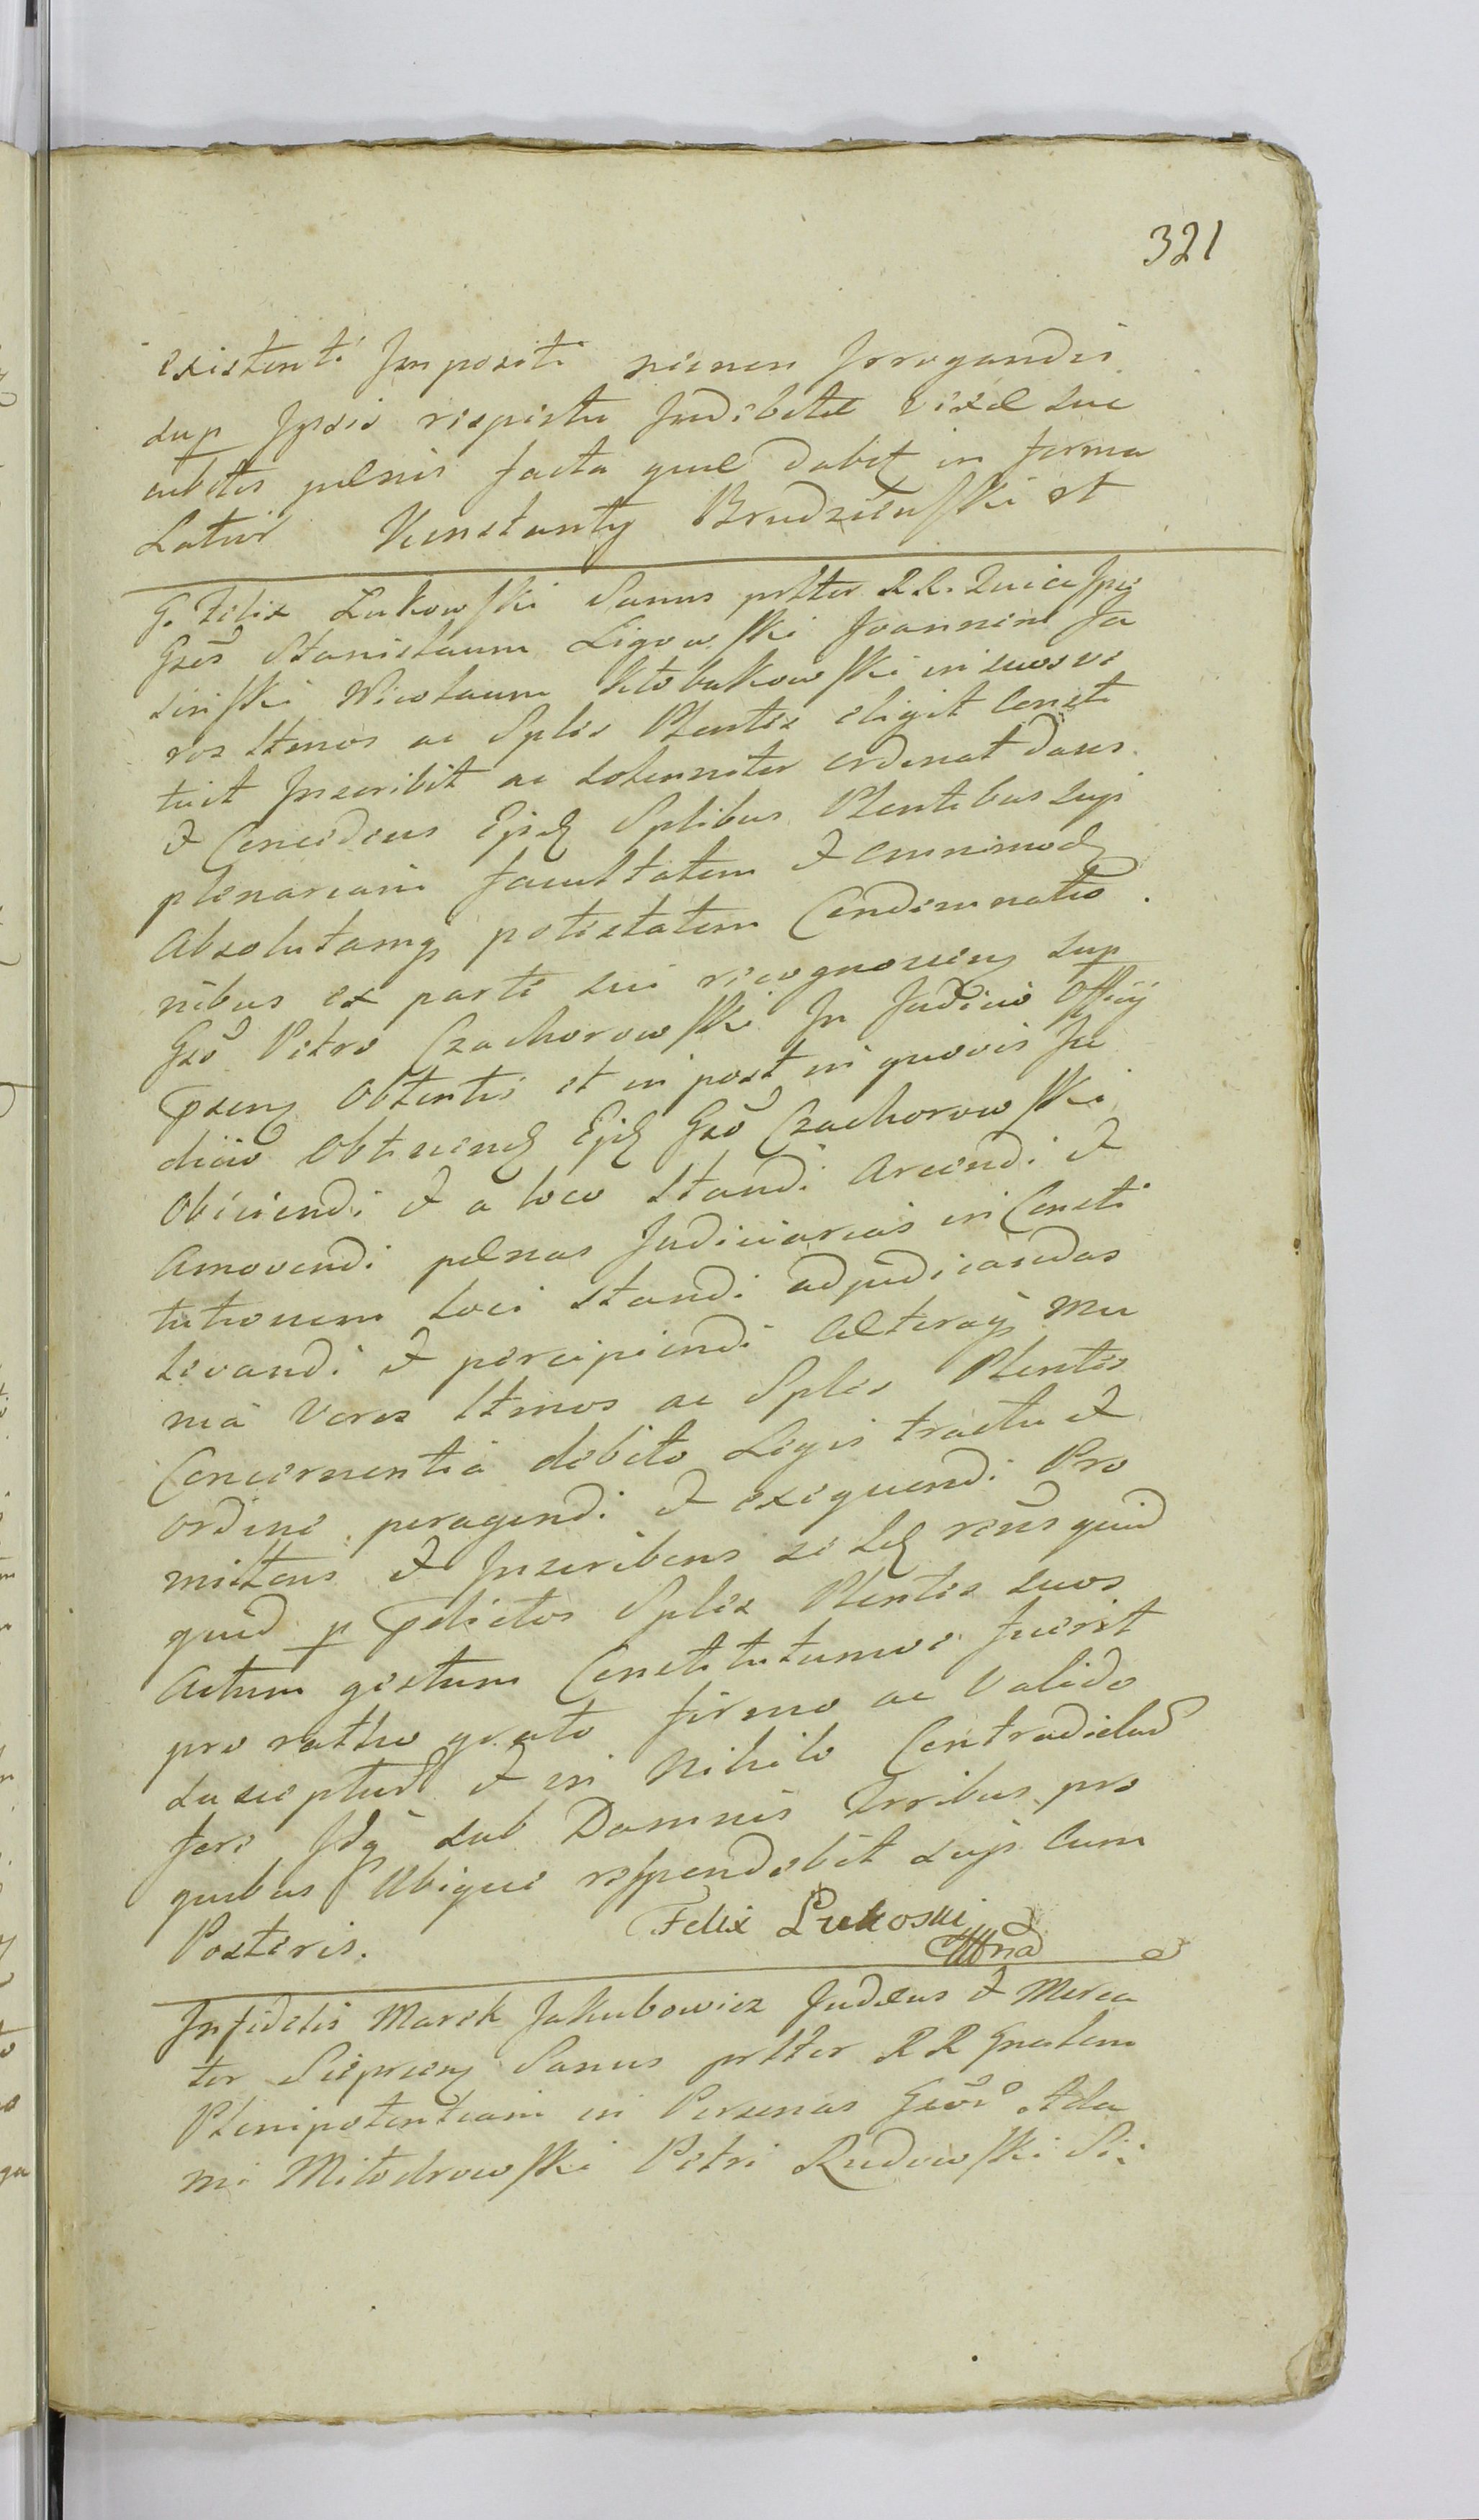 321
existenti Impositi nienen Irrogandis
sup Ipsis respectu Indebitae vexae suc
cubitis paenis facta quae dabit in forma
Latiũs Konstanty Brudzieński st
G. Felix Łukowski Sanus pltter RR. Quia Ipse
Gsos Stanislaum Ligowski Joannem Ja
sinski Nicolaum Kłobukowski in suos ve
ros Ltmos ac Splés Plentes eligit Consti
tuit Inscribit ac solenniter ordinat dans
& Concedens Ejsd Splibus Plentibus suis
plenariam facultatem & omnimod
absolutamq potestatem Condemnatio
nibus ex parte sui recognoscen sup
Gso Petro Czachorowski In Judicio Officij
psen Obtentis et in post in quovis Ju
dicio Obtinend Ejd Gso Czachorowski
Obiiciendi & a loco standi arcendi &
amovendi paenas Judiciarias in Consti
tutionem loci standi adjudicandas
levandi & percipiendi caeteraq Mu
nia Veros Ltmos ac Splés Plentes
Concernentia debito Legis tractu &
ordine peragendi & exequendi Pro
mittens & Inscribens se id reus quid
quid p pdictos Splés Plentes suos
actum gestum Constitutumve fuerit
pro ratho grato firmo ac Valido
suscepturũ & in Nihilo Contradictur
fore Idq sub Damnis Trribus pro
quibus Ubique respondebit suis Cum
Posteris. Felix Łukoski
Mmd
Infidelis Marek Jakubowicz Judaeus & Merca
tor Sieprcen Sanus pltter RR Gnalem
Plenipotentiam in Personas Gsor Ada
mi Miłodrowski Petri Rudowski Si: